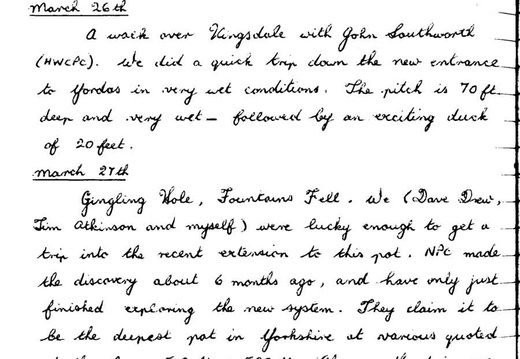 March 26th
A walk over Kingsdale with John Southworth
(HWCPC). We did a quick trip down the new entrance
to Yordas in very wet conditions. The pitch is 70 ft
deep and very wet - followed by an exciting duck
of 20 feet.
March 27th
Gingling Hole, Fountains Fell. We (Dave Drew,
Tim Atkinson and myself) were lucky enough to get a
trip into the recent extension to this pot. NPC made
the discovery about 6 months ago, and have only just
finished exploring the new system. They claim it to
be the deepest pot in Yorkshire at various quoted